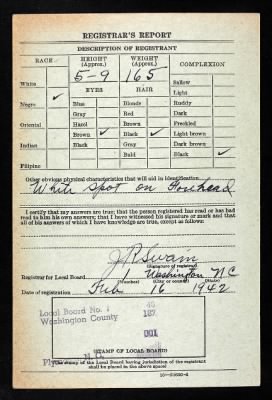 REGISTRAR'S REPORT
DESCRIPTION OF REGISTRANT
RACE HEIGHT (Approx.) WEIGHT (Approx.) COMPLEXION
5-9 165
White Sallow
EYES HAIR Light
Negro ✓ Blue Blonde Ruddy
Gray Red Dark
Oriental Hazel Brown Freckled
Brown ✓ Black ✓ Light brown
Indian Black Gray Dark brown
Bald Black ✓
Filipino
Other obvious physical characteristics that will aid in identification
White spot on Forehead
I certify that my answers are true; that the person registered has read or has had
read to him his own answers; that I have witnessed his signature or mark and that
all of his answers of which I have knowledge are true, except as follows:
J. R. Swain
(Signature of registrar)
Registrar for Local Board 1 Washington N C
(Number) (City or county) (State)
Date of registration Feb 16 1942
Local Board No. 1 46
Washington County 187
001
N. C.
STAMP OF LOCAL BOARD
(The stamp of the Local Board having jurisdiction of the registrant
shall be placed in the above space)